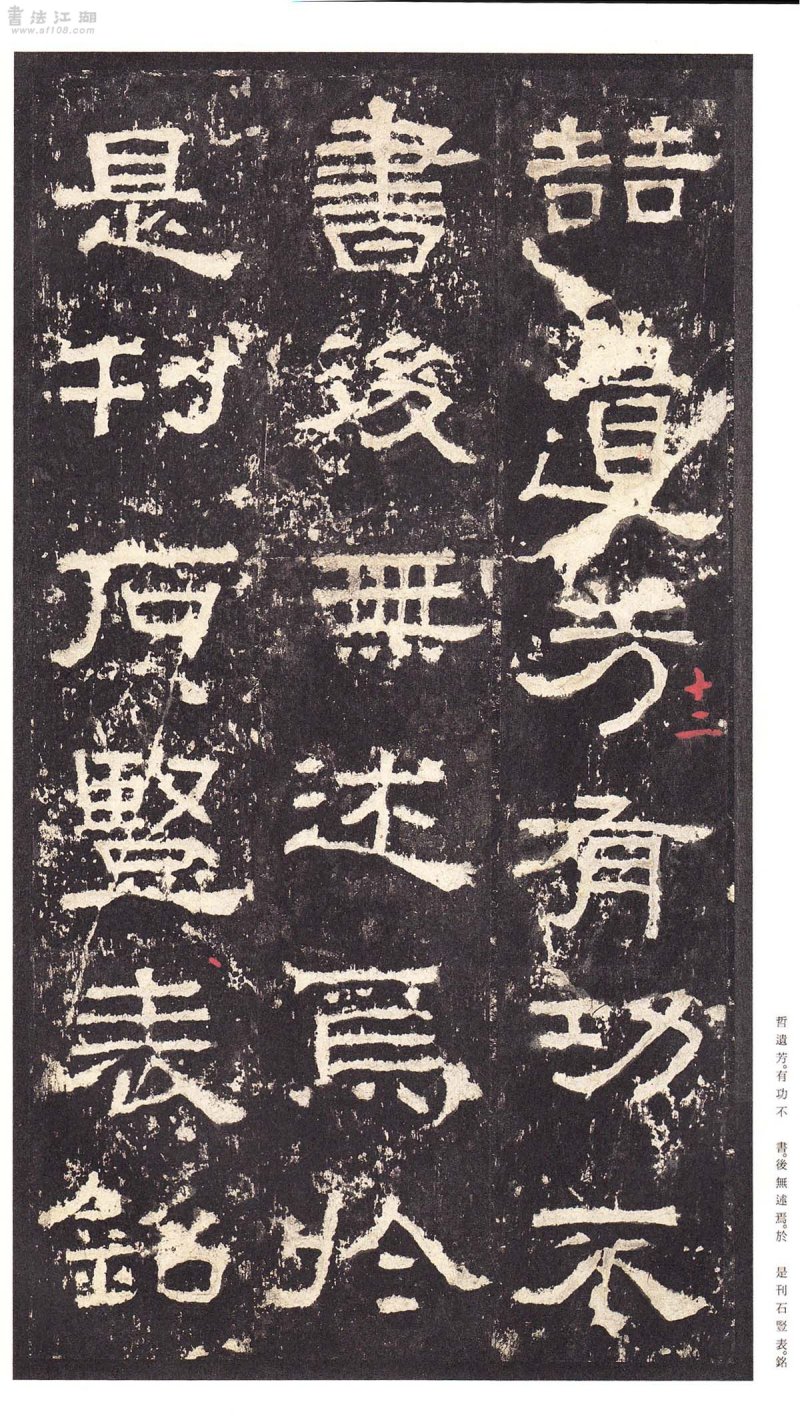 書法江湖
www.af108.com
喆遺芳有功不
書後無述焉於
是刊石竪表銘
十二
哲遺芳。有功不　書。後無述焉。於　是刊石竪表。銘